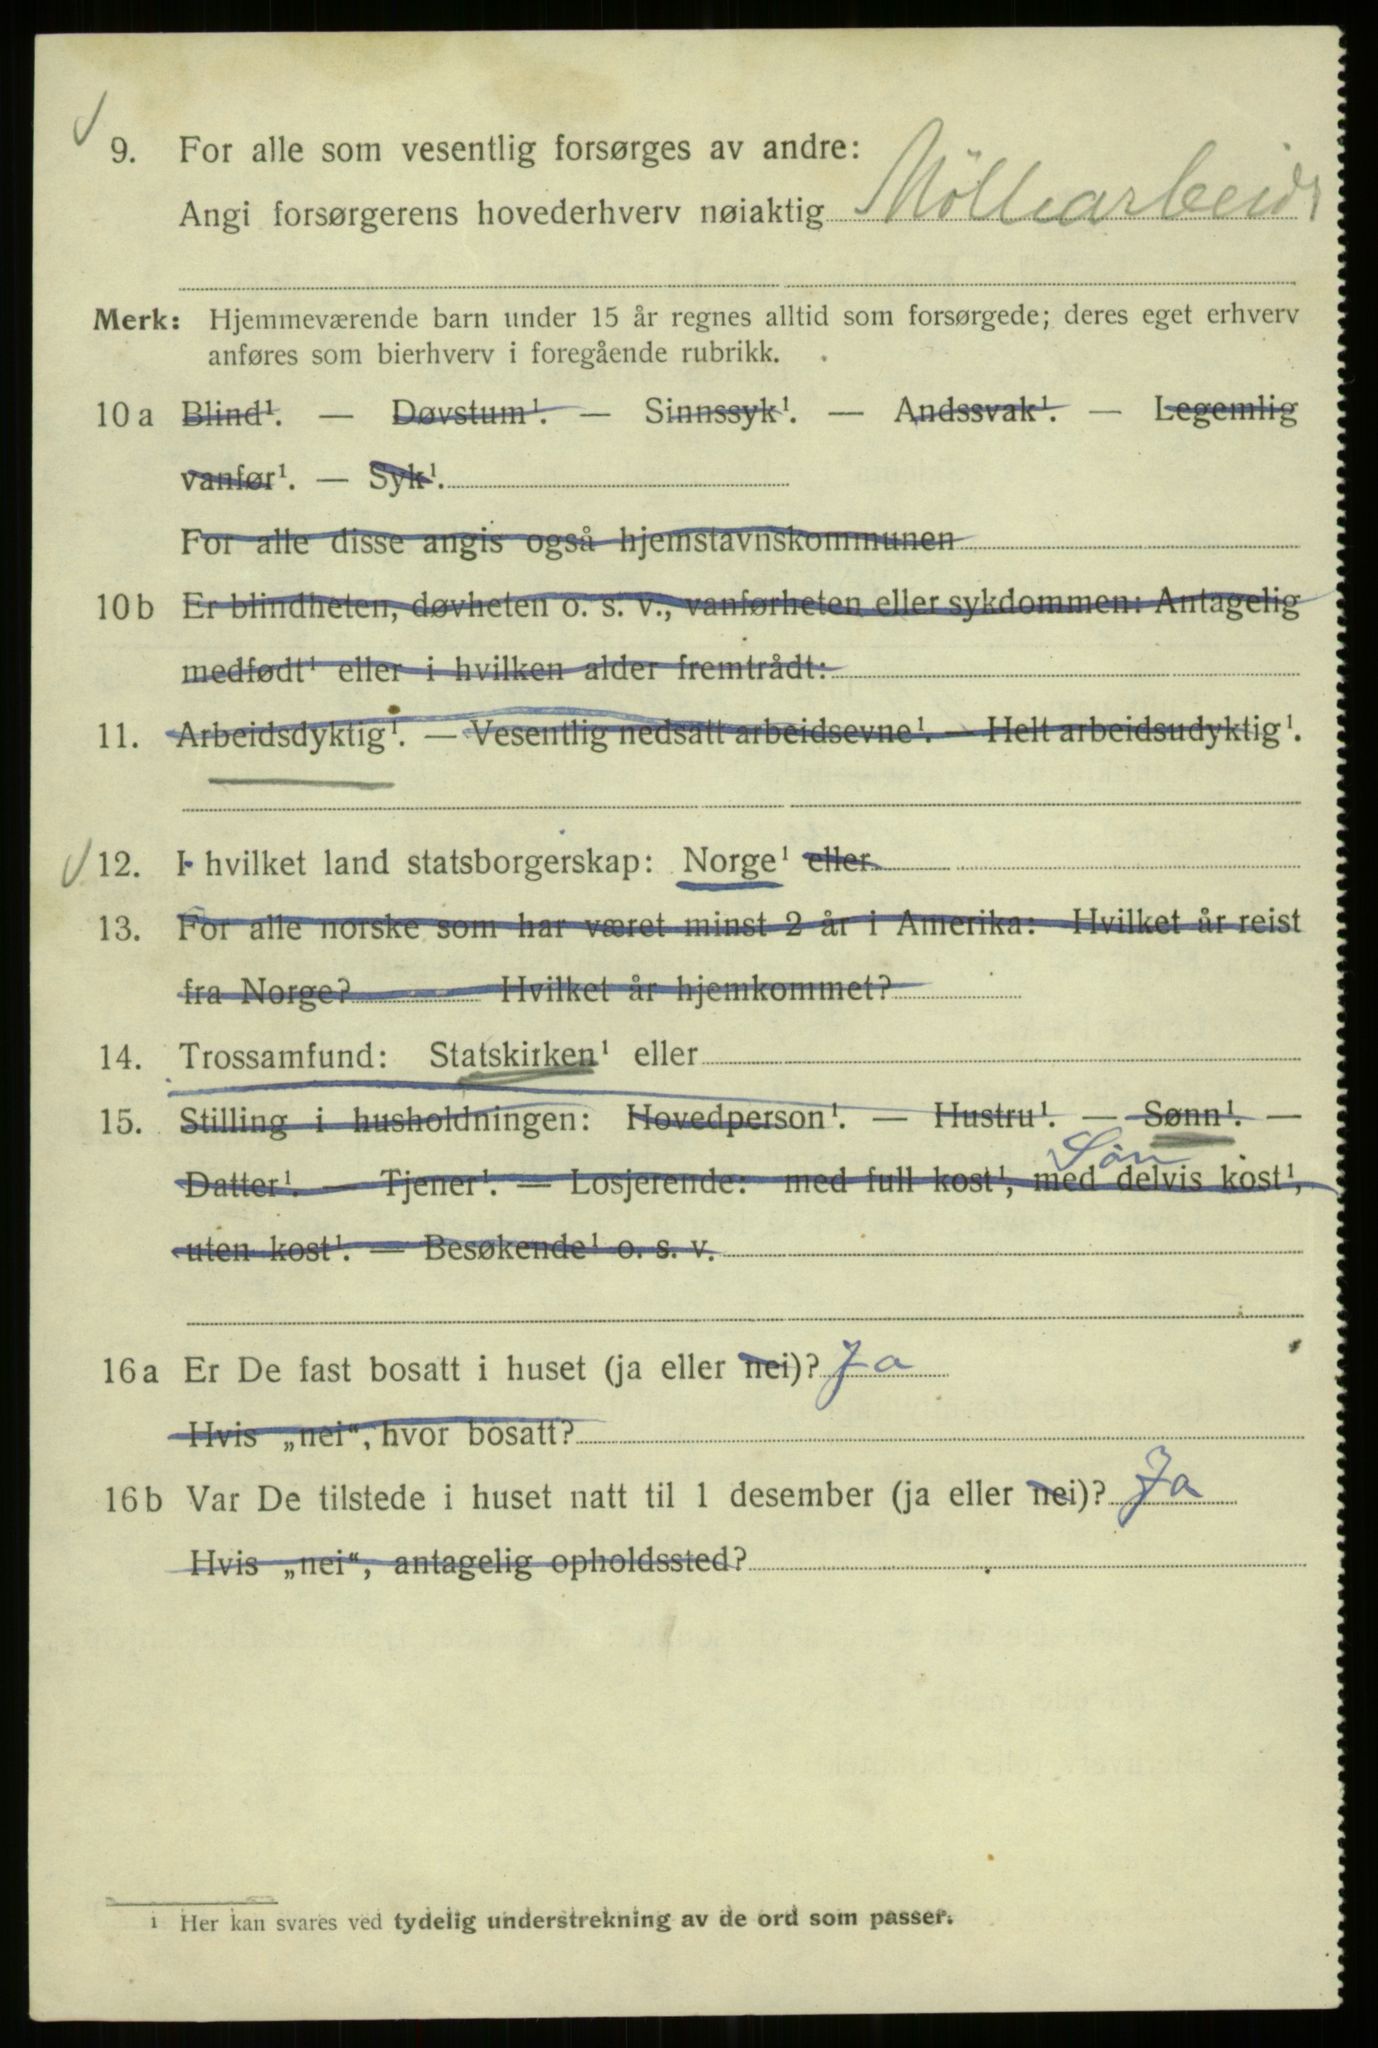 9. For alle som vesentlig forsørges av andre:
Angi forsørgerens hovederhverv nøiaktig Möllearbeidr
Merk: Hjemmeværende barn under 15 år regnes alltid som forsørgede; deres eget erhverv
anføres som bierhverv i foregående rubrikk.
10 a Blind¹. — Døvstum¹. — Sinnssyk¹. — Andssvak¹. — Legemlig
vanfør¹. — Syk¹.
For alle disse angis også hjemstavnskommunen
10 b Er blindheten, døvheten o. s. v., vanførheten eller sykdommen: Antagelig
medfødt¹ eller i hvilken alder fremtrådt:
11. Arbeidsdyktig¹. — Vesentlig nedsatt arbeidsevne¹. — Helt arbeidsudyktig¹.
12. I hvilket land statsborgerskap: Norge¹ eller
13. For alle norske som har været minst 2 år i Amerika: Hvilket år reist
fra Norge? Hvilket år hjemkommet?
14. Trossamfund: Statskirken¹ eller
15. Stilling i husholdningen: Hovedperson¹. — Hustru¹. — Sønn¹. —
Sön
Datter¹. — Tjener¹. — Losjerende: med full kost¹, med delvis kost¹,
uten kost¹. — Besøkende¹ o. s. v.
16 a Er De fast bosatt i huset (ja eller nei)? Ja
Hvis „nei“, hvor bosatt?
16 b Var De tilstede i huset natt til 1 desember (ja eller nei)? Ja
Hvis „nei“, antagelig opholdssted?
¹ Her kan svares ved tydelig understrekning av de ord som passer.